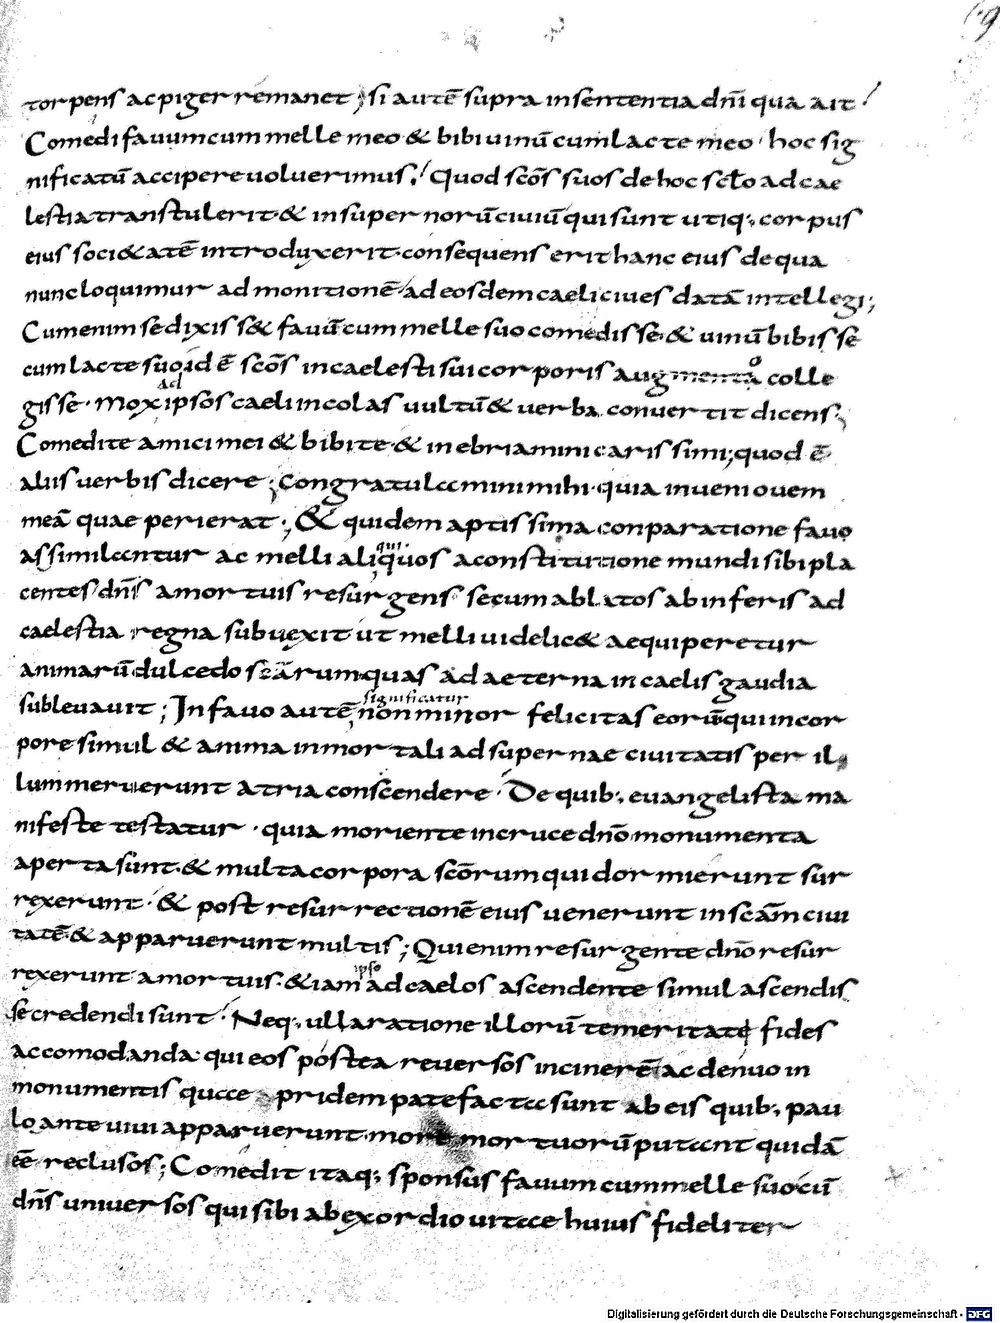 torpens ac piger remanet ; si autē supra in sententia dn̄i qua ait .
Comedi fauum cum melle meo & bibi uinū cum lacte meo · hoc sig
nificatū accipere uoluerimus . Quod scōs suos de hoc sclo ad cae
lestia transtulerit · & in supernorū ciuiū qui sunt utiq; corpus
eius soci&atē introduxerit · consequens erit hanc eius de qua
nunc loquimur admonitionē ad eosdem caeli ciues datā intellegi ;
Cum enim se dixiss& fauū cum melle suo comedisse & uinū bibisse
cum lacte suo id ē scōs in caelesti sui corporis augmento colle
gisse · mox ad ipsos caeli incolas uultū & uerba conuertit dicens ·
Comedite amici mei & bibite · & inebriamini carissimi ; quod ē
aliis uerbis dicere ; Congratulamini mihi · quia inueni ouem
meā quae perierat ; & quidem aptissima conparatione fauo
assimilantur ac melli ali qui quos a constitutione mundi sibi pla
centes dn̄s a mortuis resurgens secum ablatos ab inferis ad
caelestia regna subuexit · ut melli uidelic& aequiperetur
animarū dulcedo scārum quas ad aeterna in caelis gaudia
subleuauit ; In fauo autē significatur non minor felicitas eorū qui in cor
pore simul & anima inmortali ad supernae ciuitatis per il
lum meruerunt atria conscendere · De quib; euangelista ma
nifeste testatur · quia moriente in cruce dn̄o monumenta
aperta sunt · & multa corpora scōrum qui dormierunt sur
rexerunt · & post resurrectionē eius uenerunt in scām ciui
tatē & apparuerunt multis ; Qui enim resurgente dn̄o resur
rexerunt a mortuis · &iam ipso ad caelos ascendente simul ascendis
se credendi sunt · Neq; ulla ratione illorū temeritate fides
accomodanda · qui eos postea reuersos in cinerē ac denuo in
monumentis quae pridem patefacta sunt ab eis quib; pau
lo ante uiui apparuerunt · more mortuorū putant quidā
eē reclusos ; Comedit itaq; sponsus fauum cum melle suo cū
dn̄s uniuersos qui sibi ab exordio uitae huius fideliter
Digitalisierung gefördert durch die Deutsche Forschungsgemeinschaft - DFG